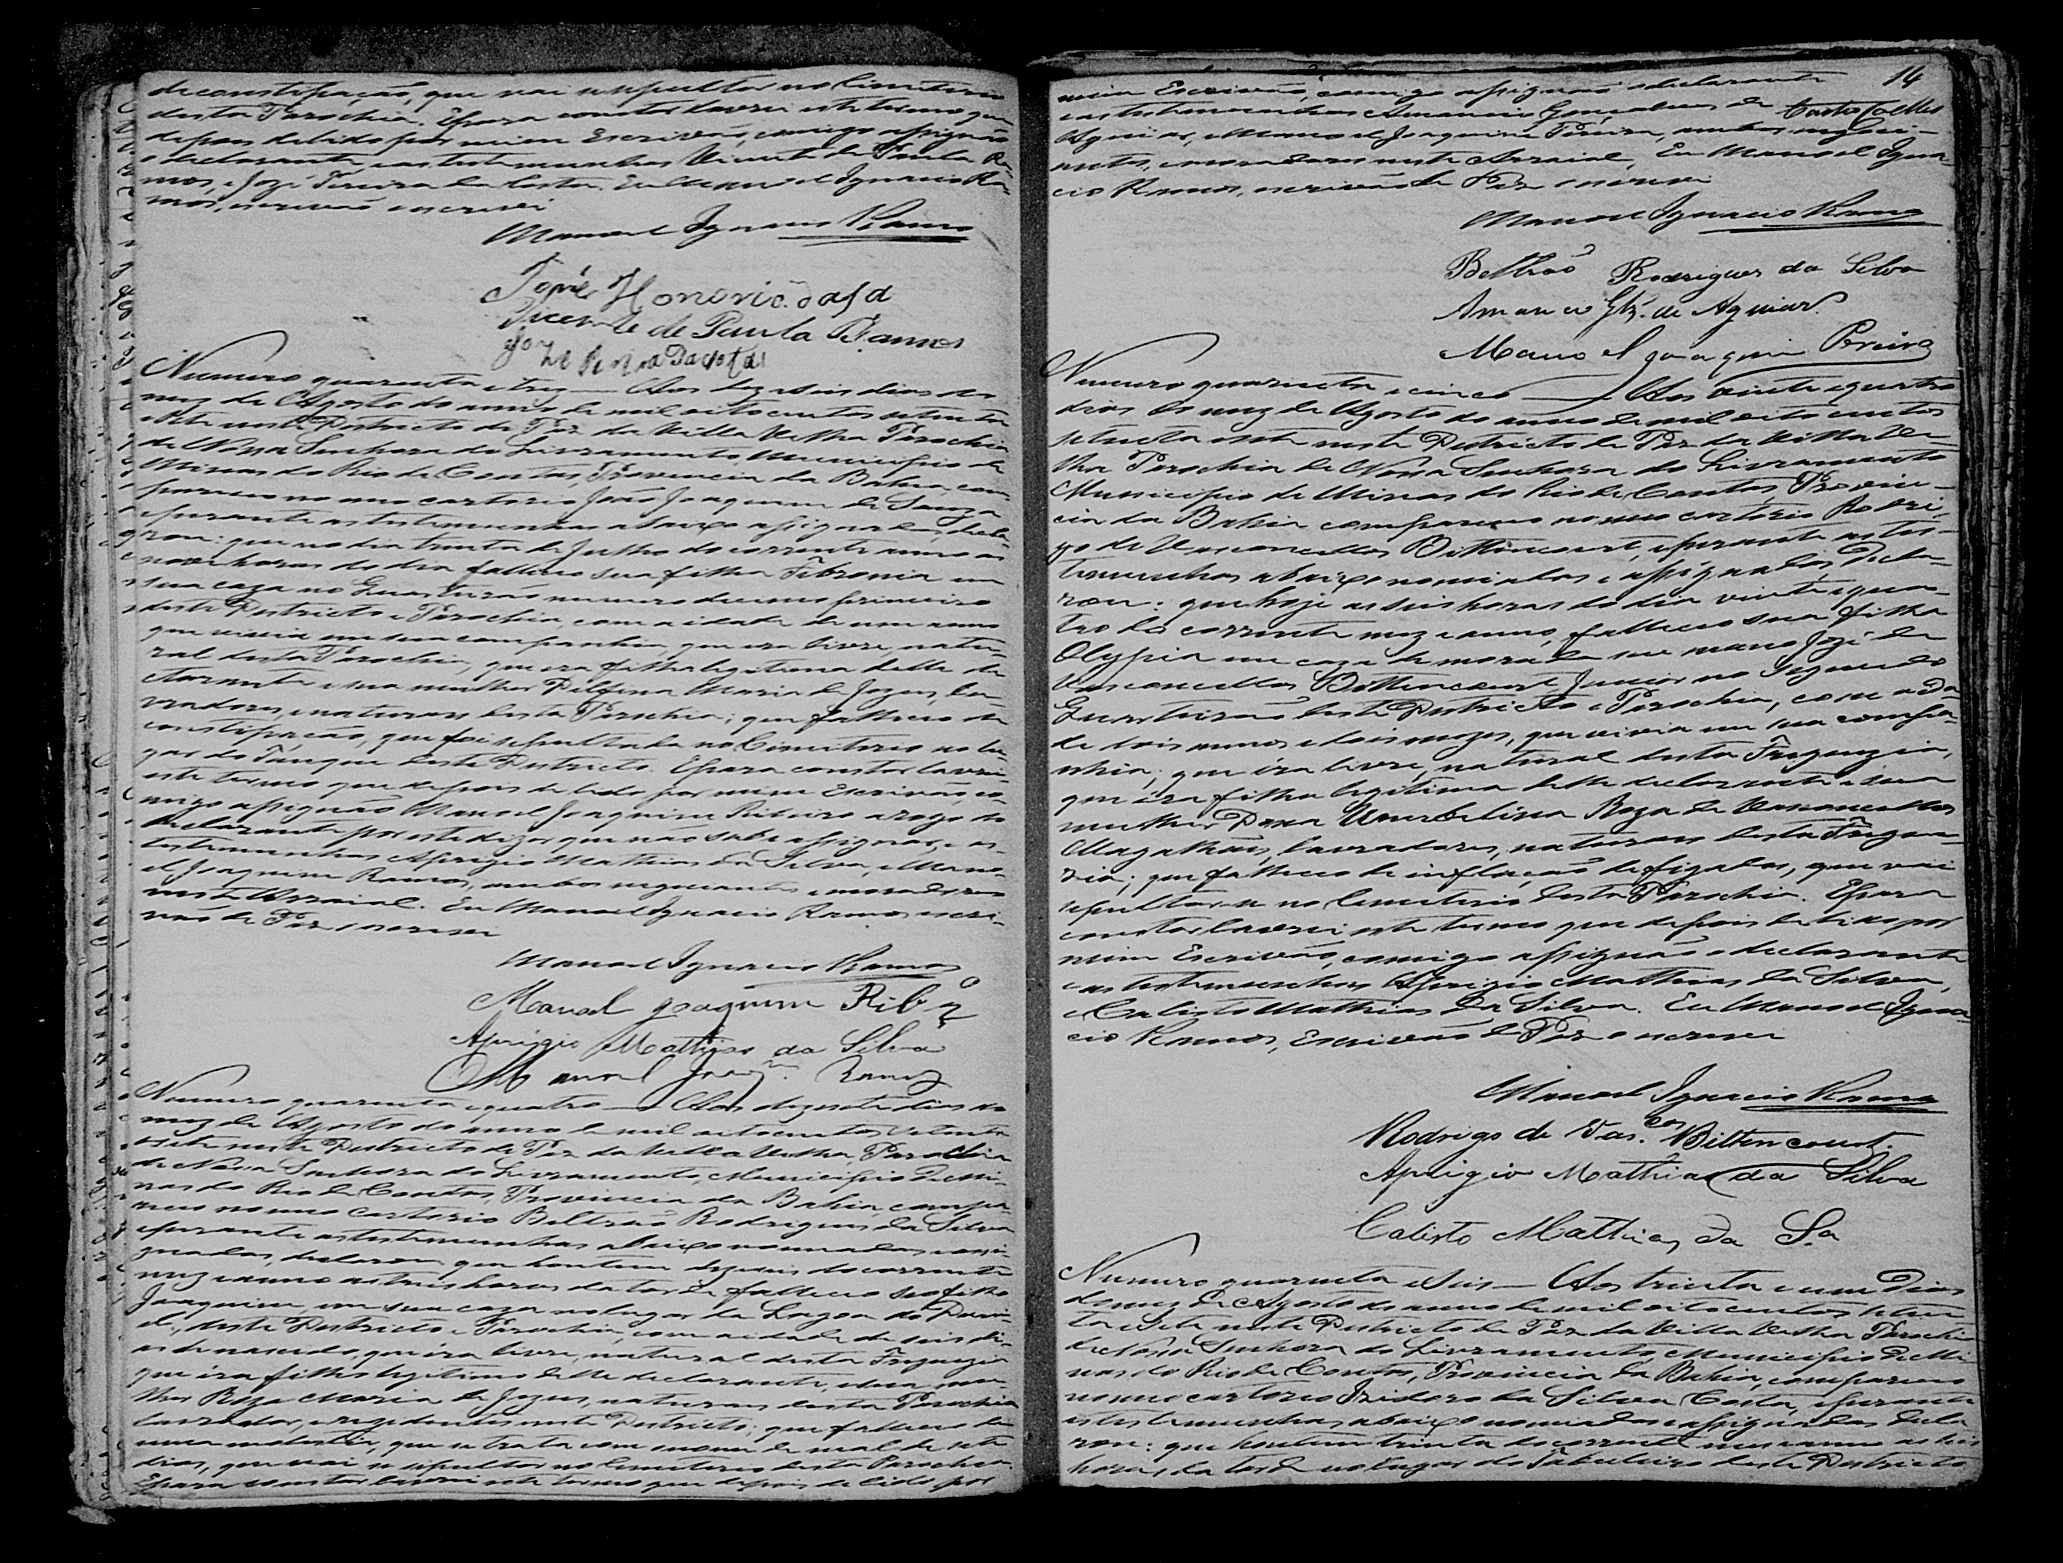 de constipação, que vai sepultar no Cimiterio
desta Parochia. E para constar lavrei este termo que
depois de lido por mim Escrivão, comigo assignão
o declarante e as testemunhas Vicente de Paula Ra-
mos, e José Pereira da Costa. Eu Manoel Ignacio Ra-
mos, escrivão escrevi
Manoel Ignacio Ramos
Honorio da Sa
Vicente de Paula Ramos
Numero quarenta e tres — Aos dezaseis dias do
mez de Agosto do anno de mil oitocentos setenta
e sete neste Destricto de Paz da Villa Velha Parochia
de Nossa Senhora do Livramento, Municipio de
Minas do Rio de Contas, Provincia da Bahia, com-
pareceo no meo cartorio João Joaquim de Souza
e perante as testemunhas abaixo assignadas, decla-
rou: que no dia trinta de Julho do corrente anno as
nove horas do dia falleceo sua filha Febronia em
sua caza no Quarteirão numero decimo primeiro
deste Destricto e Parochia, com a idade de um anno
que vivia em sua companhia, que era livre, natu-
ral desta Parochia, que era filha legitima delle de-
clarante e sua mulher Delfina Maria de Jezus, la-
vradores, e naturaes desta Parochia; que falleceo de
constipação, que foi sepultada no Cimiterio no lu-
gar do Tanque deste Destricto. E para constar lavrei
este termo que depois de lido por mim Escrivão, co-
migo assignão Manoel Joaquim Ribeiro a rogo do
declarante por este dizer que não sabe assignar, e as
testemunhas Aprigio Mathias da Silva, e Mano-
el Joaquim Ramos, ambos negociantes e moradores
neste Arraial. Eu Manoel Ignacio Ramos escri-
vão de Paz o escrevi
Manoel Ignacio Ramos
Manoel Joaquim Ribro
Aprigio Mathias da Silva
Manoel Joaqm. Ramos
Numero quarenta e quatro — Aos dezesete dias do
mez de Agosto do anno de mil oitocentos setenta
e sete neste Destricto de Paz da Villa Velha, Parochia
de Nossa Senhora do Livramento, Municipio de Mi-
nas do Rio de Contas, Provincia da Bahia, compa-
receo no meo Cartorio Beltrão Rodrigues da Silva
e perante as testemunhas abaixo nomeadas e assi-
gnadas, declarou que hontem dezeseis do corrente
mez e anno as tres horas da tarde falleceo seo filho
Joaquim, em sua caza no lugar da Lagoa do
deste Destricto e Parochia, com a idade de seis di-
as de nascido, que éra livre, natural desta Freguezia
que éra filho legitimo delle declarante, e sua mu-
lher Roza Maria de Jezus, naturaes desta Parochia
lavrador, e rezidencias neste Destricto; que falleceo de
uma molestia, que se trata com nome de mal de sete
dias, que vai se sepultar no Cimiterio desta Parochia
E para constar lavrei este termo que depois de lido por
14
mim Escrivão, comigo assignão o declarante
e as testemunhas Amancio Gonçalves de
Aguiar, e Manoel Joaquim Pereira, ambos negoci-
antes, e moradores neste Arraial, Eu Manoel Igna-
cio Ramos, escrivão de Paz o escrevi
Manoel Ignacio Ramos
Beltrão Rodrigues da Silva
Amancio Glz. de Aguiar.
Manoel Joaquim Pereira
Numero quarenta e cinco — Aos vinte e quatro
dias do mez de Agosto do anno de mil oito centos
setenta e sete neste Destricto de Paz da Villa Ve-
lha Parochia de Nossa Senhora do Livramento
Municipio de Minas do Rio de Contas, Provin-
cia da Bahia compareceo no meo cartorio Rodri-
go de Vasconcellos Bittencourt, e perante as tes-
temunhas abaixo nomiadas e assignadas, decla-
rou: que hoje as seis horas do dia vinte e qua-
tro do corrente mez e anno, falleceo sua filha
Olypia em caza de morada de seu mano José de
Vasconcellos Bittencourt Junior no segundo
Quarteirão deste Destricto e Parochia, com a ida-
de dois annos e dois mezes, que vivia em sua compa-
nhia; que éra livre, natural desta Freguezia,
que éra filha legitima delle declarante e sua
mulher Dona Umbelina Roza de Vasconcellos
Magalhães, lavradores, naturaes desta Fregue-
zia; que falleceo de inflação de figados, que vai
sepultar-se no Cimiterio desta Parochia. E para
constar lavrei este termo que depois de lido por
mim Escrivão, comigo assignão o declarante
e as testemunhas Aprigio Mathias da Silva,
e Calisto Mathias da Silva. Eu Manoel Igna-
cio Ramos, Escrivão de Paz o escrevi
Manoel Ignacio Ramos
Rodrigo de Vas.cos Bittencourt.
Aprigio Mathias da Silva
Calisto Mathias da S.a
Numero quarenta e seis — Aos trinta e um dias
do mez de Agosto do anno de mil oitocentos seten-
ta e sete neste Destricto de Paz da Villa Velha Parochia
de Nossa Senhora do Livramento Municipio de Mi-
nas do Rio de Contas, Provincia da Bahia, compareceo
no meo cartorio Izidoro da Silva Costa, e perante
as testemunhas abaixo nomiadas e assignadas decla-
rou: que hontem trinta do corrente mez e anno as
horas da tarde no lugar do Taboleiro deste Destricto